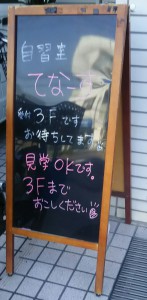 自習室
てなーす
3Fです
お待ちしてます
見学OKです。
3Fまで
おこしください